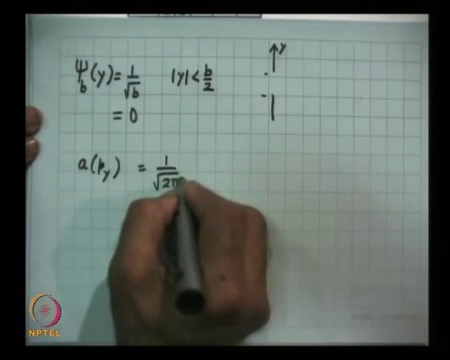 ψ_b(y) = 1/√b |y| < b/2
= 0
y
a(p_y) = 1/√2π
NPTEL